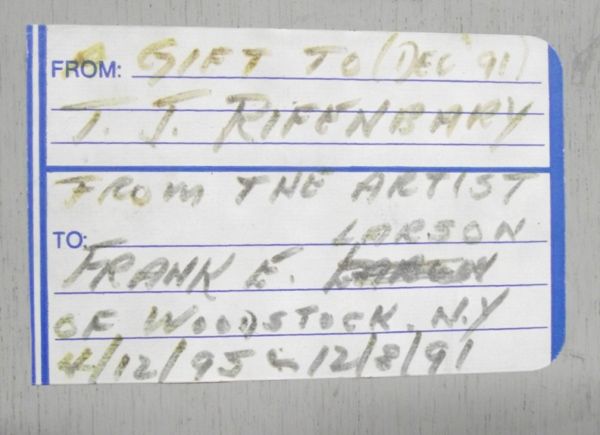 FROM: A GIFT TO (DEC '91)
T. J. RIFENBARY
FROM THE ARTIST
TO: LARSON
FRANK E.
OF WOODSTOCK, N.Y
4/12/95 & 12/8/91